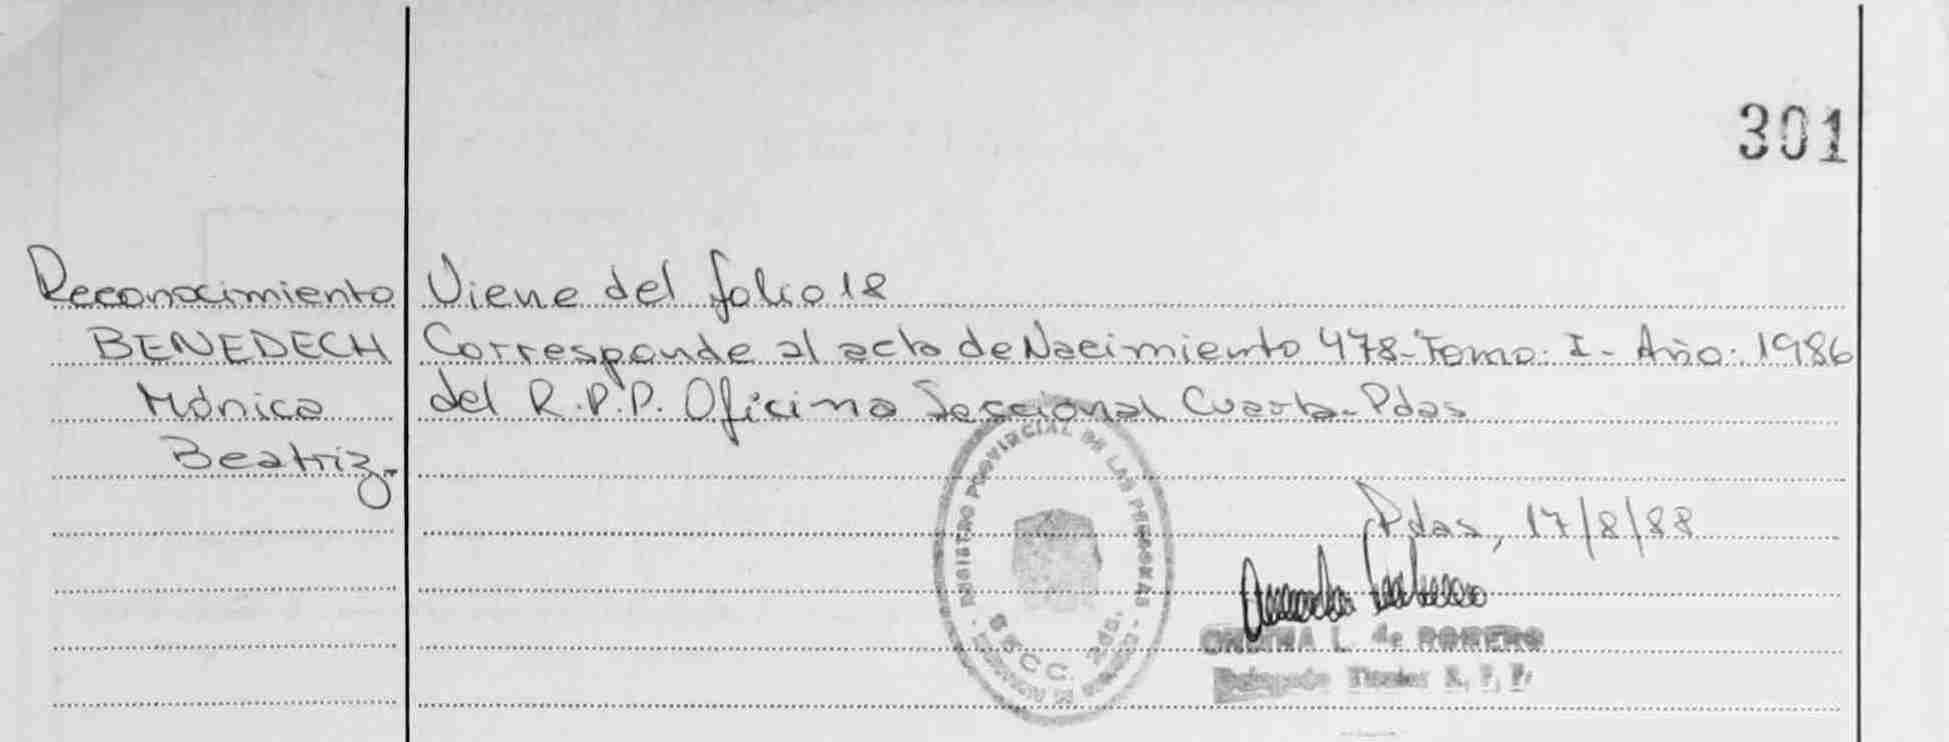 301
Reconocimiento
BENEDECH
Mónica
Beatriz.
Viene del folio 18
Corresponde al acta de Nacimiento 478-Tomo: I - Año: 1986
del R.P.P. Oficina Seccional Cuarta-Pdas
Pdas, 17/8/88
REGISTRO PROVINCIAL DE LAS PERSONAS
SECC. 2da.
L. de ROMERO
Titular R. P. P.